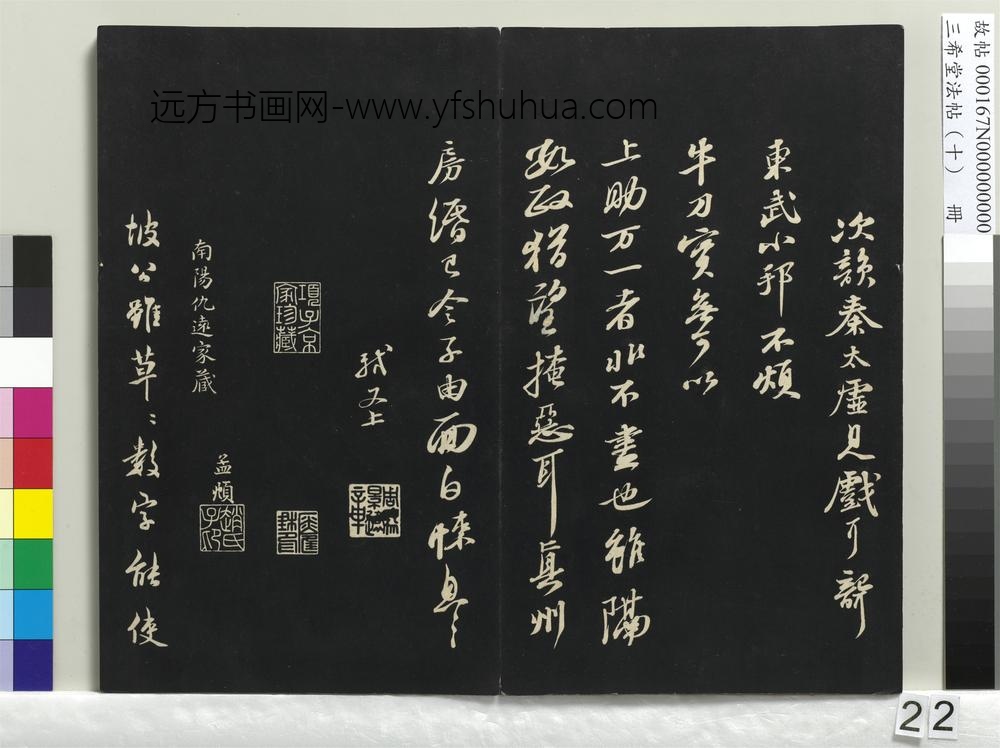 远方书画网-www.yfshuhua.com
次韻秦太虛見戲耳聾
東武小邦不煩
牛刀實無可以
上助万一者非不盡也雖隔
數政猶望掩惡耳真州
房緡已令子由面白悚息〻
軾又上
項子京家珍藏
南陽仇遠家藏
孟頫
趙氏子昂
坡公雖草〻數字能使
故帖 000167N000000000
三希堂法帖(十) 冊
22